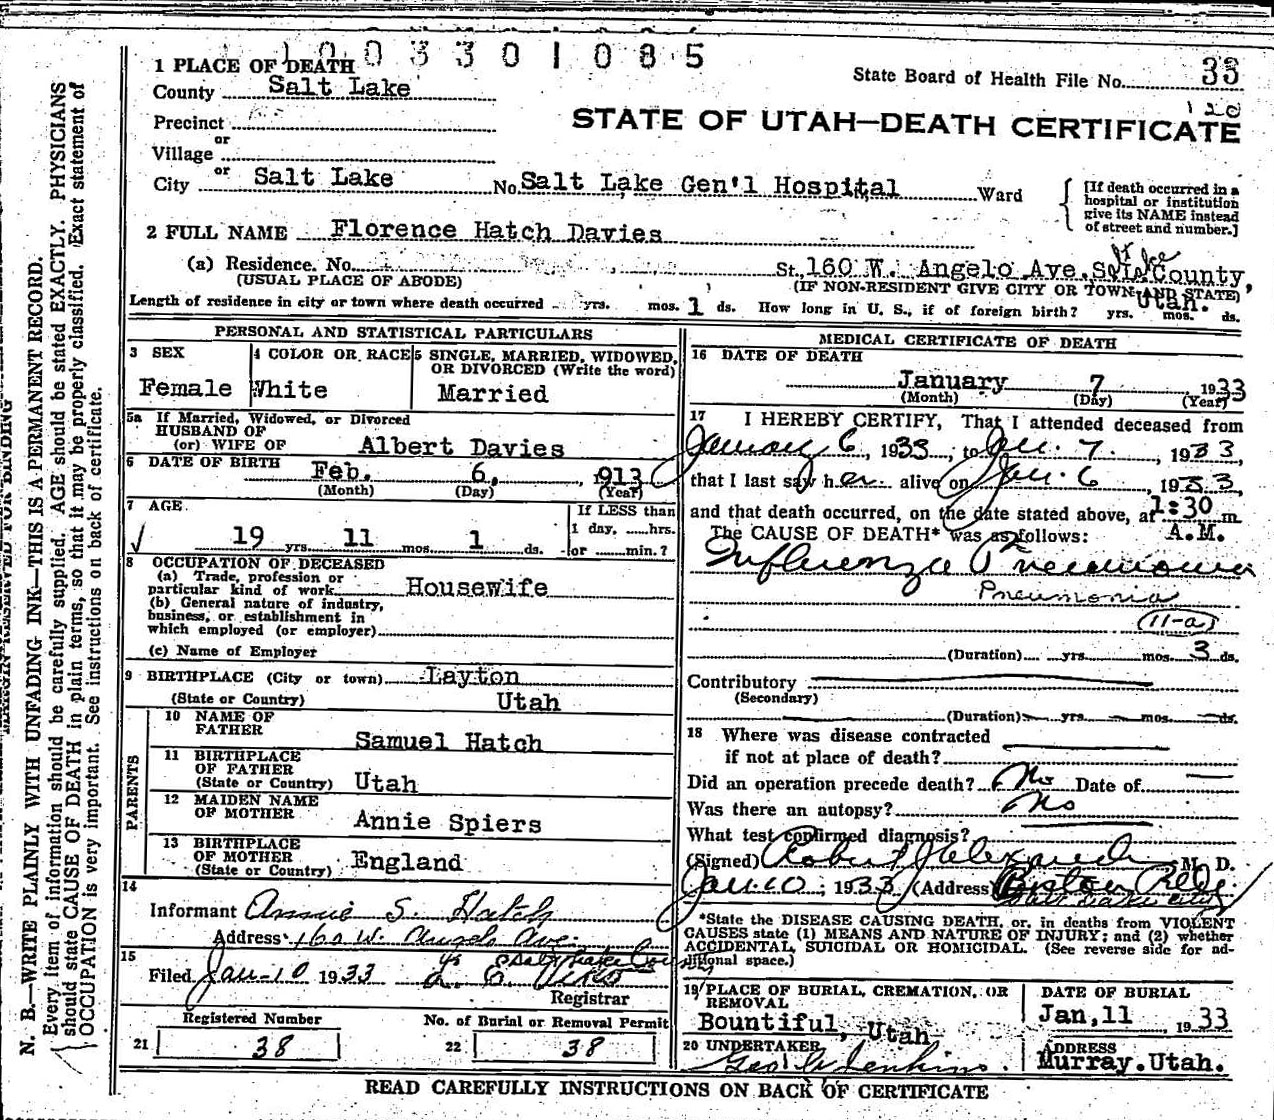 1003301085
1 PLACE OF DEATH
State Board of Health File No. 33
120
County Salt Lake
STATE OF UTAH—DEATH CERTIFICATE
Precinct
or
Village
or
City Salt Lake No. Salt Lake Gen'l Hospital Ward
[If death occurred in a
hospital or institution
give its NAME instead
of street and number.]
2 FULL NAME Florence Hatch Davies
(a) Residence. No. St., 160 W. Angelo Ave. S. Lake County,
Utah.
(USUAL PLACE OF ABODE) (IF NON-RESIDENT GIVE CITY OR TOWN AND STATE)
Length of residence in city or town where death occurred yrs. mos. 1 ds. How long in U. S., if of foreign birth? yrs. mos. ds.
PERSONAL AND STATISTICAL PARTICULARS
3 SEX
Female
4 COLOR OR RACE
White
5 SINGLE, MARRIED, WIDOWED,
OR DIVORCED (Write the word)
Married
5a If Married, Widowed, or Divorced
HUSBAND OF
(or) WIFE OF Albert Davies
6 DATE OF BIRTH Feb. 6, 1913
(Month) (Day) (Year)
7 AGE
19 yrs. 11 mos. 1 ds.
If LESS than
1 day, hrs.
or min.?
8 OCCUPATION OF DECEASED
(a) Trade, profession or
particular kind of work Housewife
(b) General nature of industry,
business, or establishment in
which employed (or employer)
(c) Name of Employer
9 BIRTHPLACE (City or town) Layton
(State or Country) Utah
PARENTS
10 NAME OF
FATHER Samuel Hatch
11 BIRTHPLACE
OF FATHER
(State or Country) Utah
12 MAIDEN NAME
OF MOTHER Annie Spiers
13 BIRTHPLACE
OF MOTHER
(State or Country) England
14
Informant Annie S. Hatch
Address 160 W. Angelo Ave.
15
Filed Jan-10 1933
Registrar
Registered Number
21 38
No. of Burial or Removal Permit
22 38
MEDICAL CERTIFICATE OF DEATH
16 DATE OF DEATH
January 7 1933
(Month) (Day) (Year)
17 I HEREBY CERTIFY, That I attended deceased from
January 6, 1933, to Jan. 7, 1933,
that I last saw her alive on Jan. 6, 1933,
and that death occurred, on the date stated above, at 1:30 m.
A.M.
The CAUSE OF DEATH* was as follows:
Influenza Pneumonia
Pneumonia
(11-a)
(Duration) yrs. mos. 3 ds.
Contributory
(Secondary)
(Duration) yrs. mos. ds.
18 Where was disease contracted
if not at place of death?
Did an operation precede death? No Date of
Was there an autopsy? No
What test confirmed diagnosis?
(Signed) Robert Alexander M. D.
Jan. 10, 1933 (Address) Boston Bldg.
Salt Lake City
*State the DISEASE CAUSING DEATH, or, in deaths from VIOLENT
CAUSES state (1) MEANS AND NATURE OF INJURY; and (2) whether
ACCIDENTAL, SUICIDAL OR HOMICIDAL. (See reverse side for ad-
ditional space.)
19 PLACE OF BURIAL, CREMATION, OR
REMOVAL
Bountiful, Utah
DATE OF BURIAL
Jan, 11, 1933
20 UNDERTAKER
Geo. W. Jenkins.
ADDRESS
Murray. Utah.
READ CAREFULLY INSTRUCTIONS ON BACK OF CERTIFICATE
MARGIN RESERVED FOR BINDING
N. B.—WRITE PLAINLY WITH UNFADING INK—THIS IS A PERMANENT RECORD.
Every item of information should be carefully supplied. AGE should be stated EXACTLY. PHYSICIANS
should state CAUSE OF DEATH in plain terms, so that it may be properly classified. Exact statement of
OCCUPATION is very important. See instructions on back of certificate.